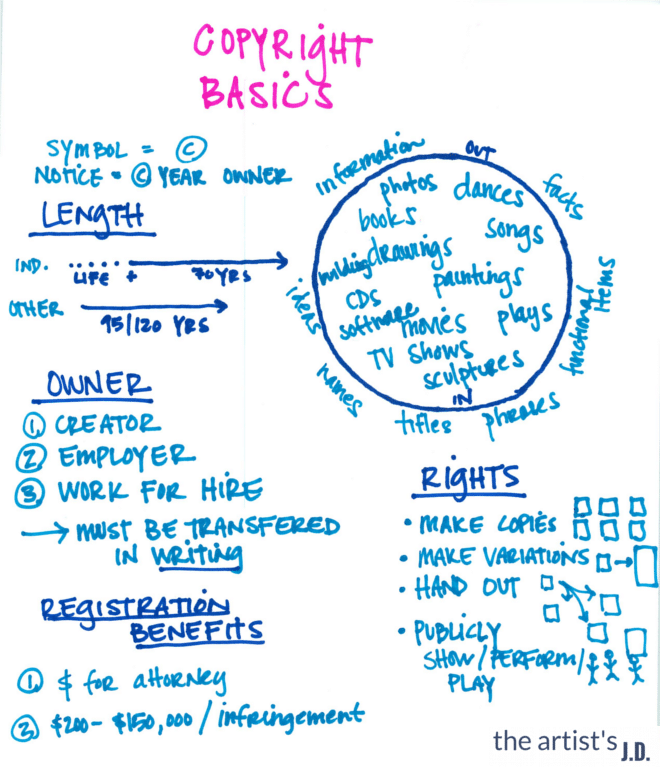 COPYRIGHT
BASICS
SYMBOL = ©
NOTICE = © YEAR OWNER
LENGTH
IND. LIFE + 70 YRS
OTHER
95/120 YRS
OWNER
① CREATOR
② EMPLOYER
③ WORK FOR HIRE
→ MUST BE TRANSFERED
IN WRITING
REGISTRATION
BENEFITS
① $ for attorney
② $200 - $150,000 / infringement
OUT
information
facts
functional
items
phrases
titles
names
ideas
photos
dances
books
songs
drawings
building
paintings
CDs
software
movies
plays
TV shows
sculptures
IN
RIGHTS
• MAKE COPIES
• MAKE VARIATIONS
• HAND OUT
• PUBLICLY
SHOW/PERFORM/
PLAY
the artist's J.D.